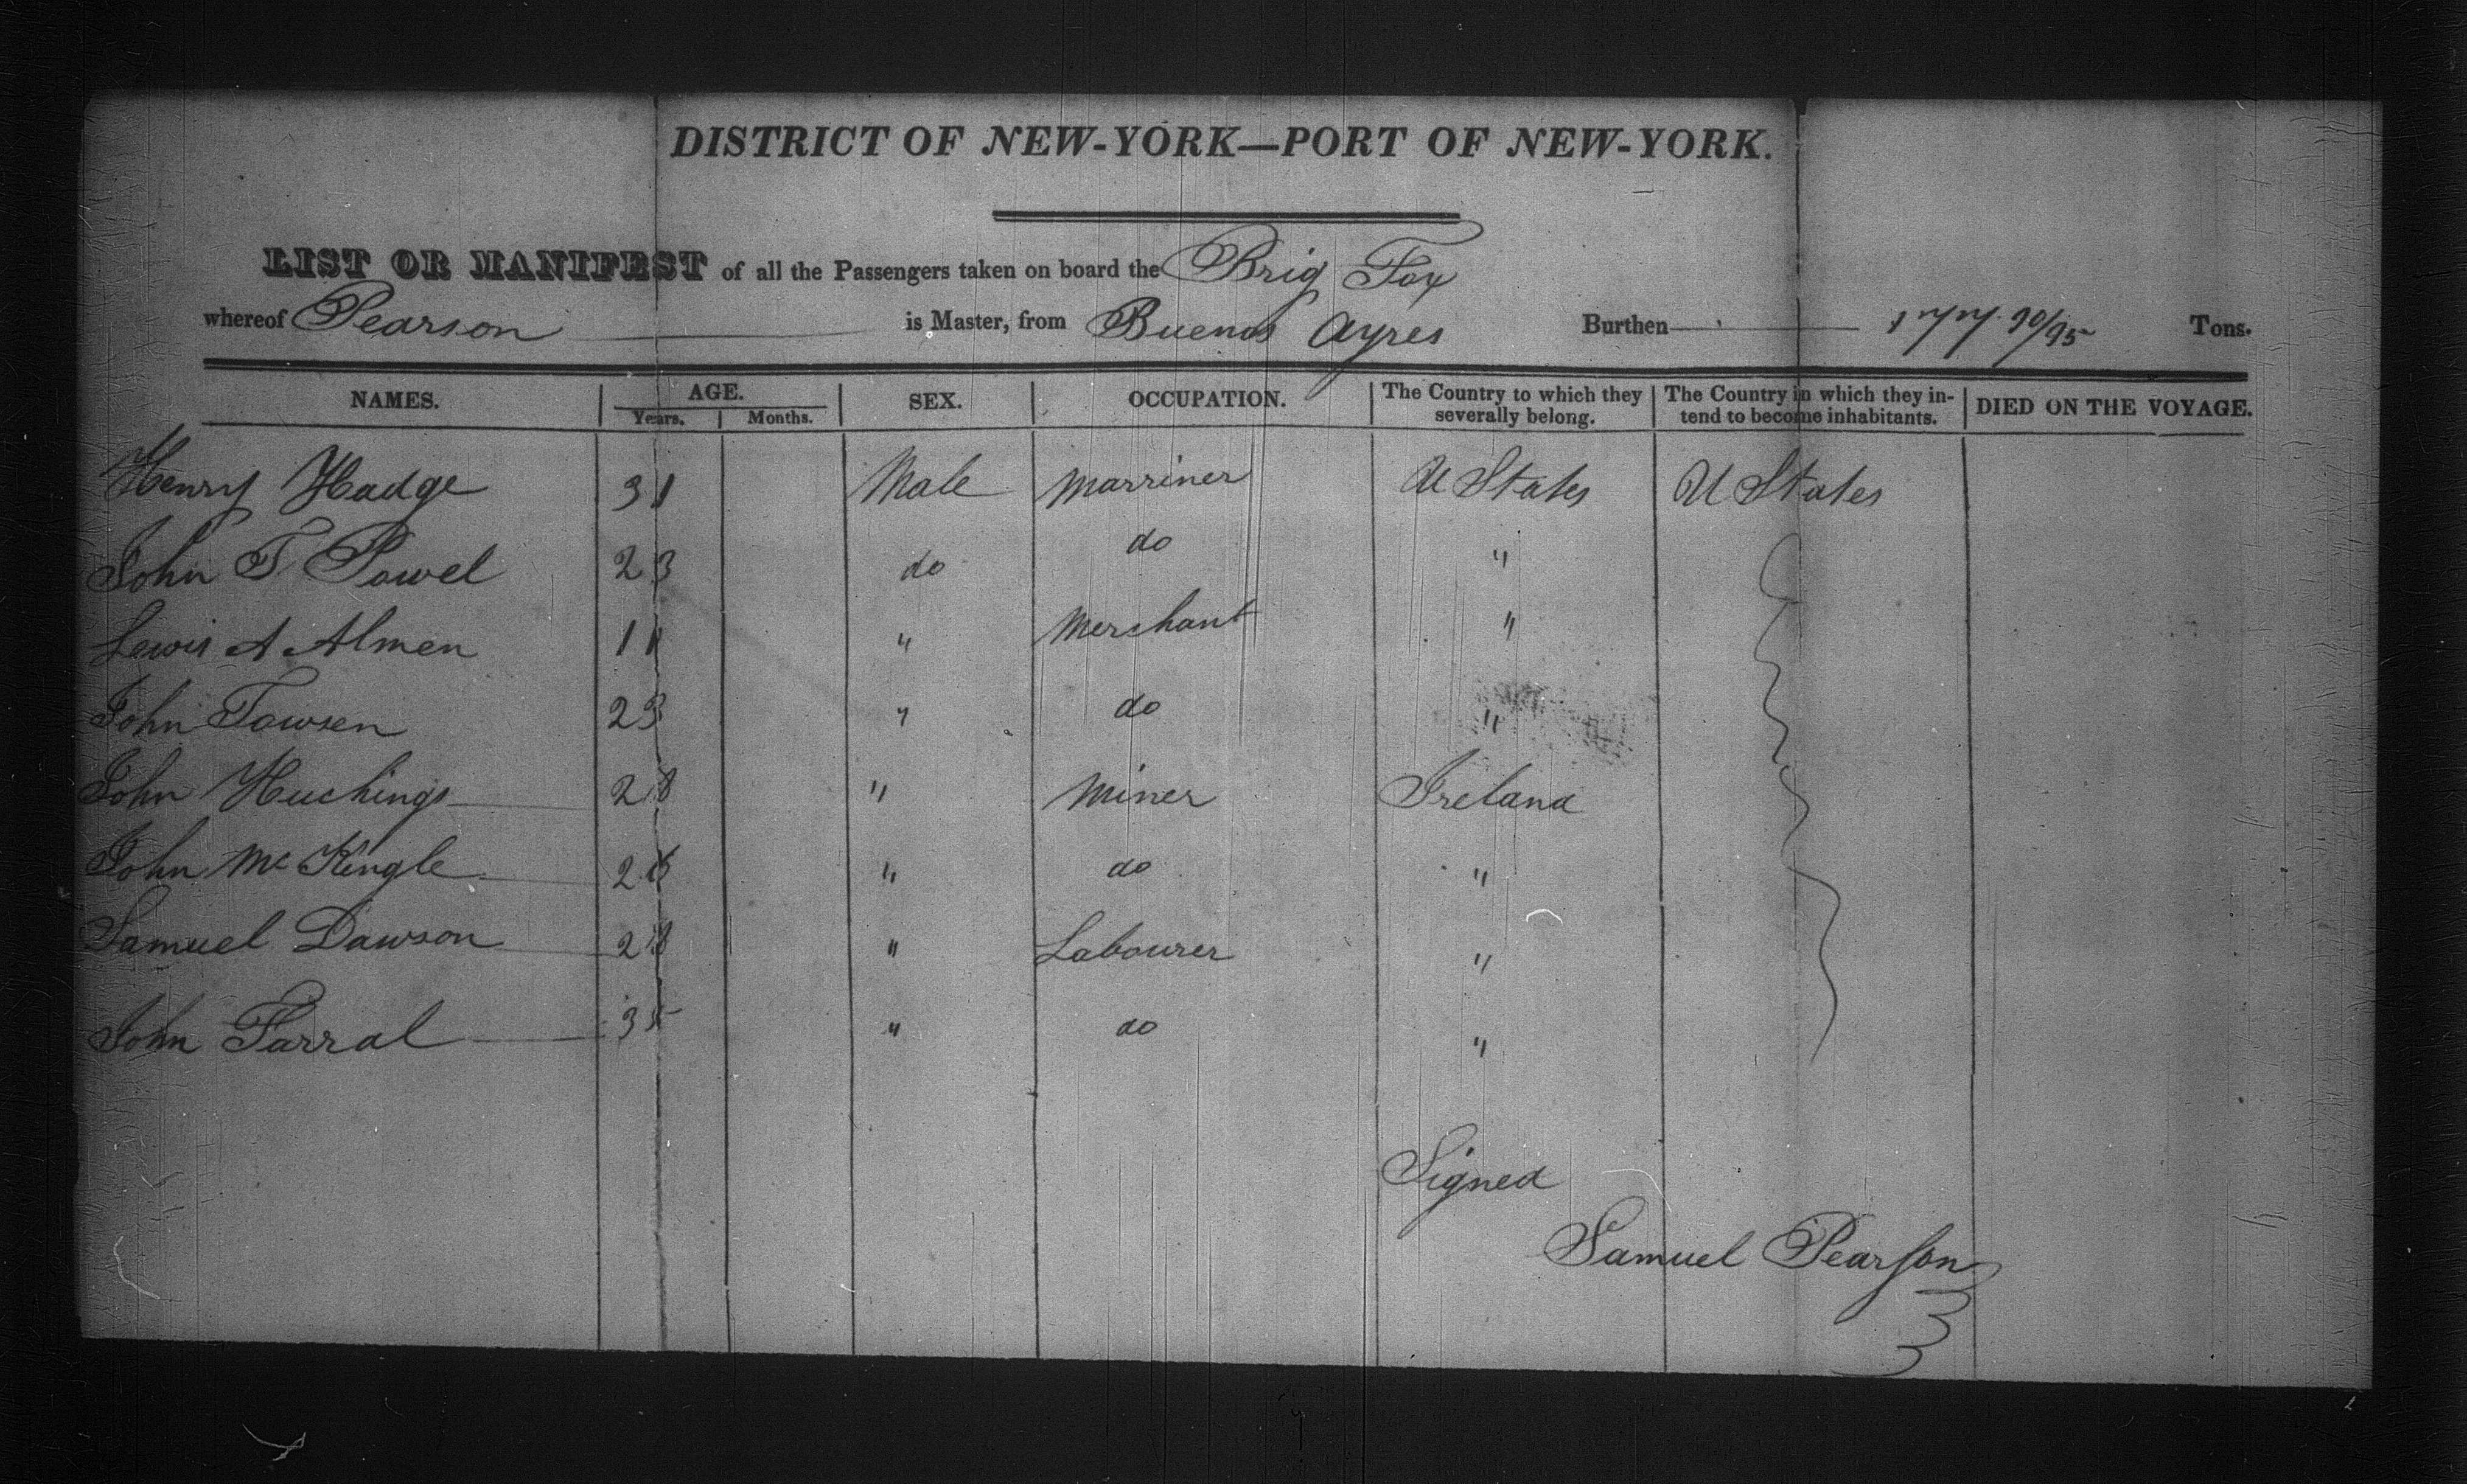 DISTRICT OF NEW-YORK—PORT OF NEW-YORK.
LIST OR MANIFEST of all the Passengers taken on board the Brig Fox
whereof Pearson is Master, from Buenos Ayres Burthen 177 90/95 Tons.
NAMES. AGE. SEX. OCCUPATION. The Country to which they severally belong. The Country in which they intend to become inhabitants. DIED ON THE VOYAGE.
Years. Months.
Henry Hadge 31 Male Marriner U States U States
John T Powel 23 do do "
Lewis A Almen 11 " Merchant "
John Towsen 23 " do "
John Huchings 28 " Miner Ireland
John McKingle 26 " do "
Samuel Dawson 28 " Labourer "
John Farral 35 " do "
Signed
Samuel Pearson